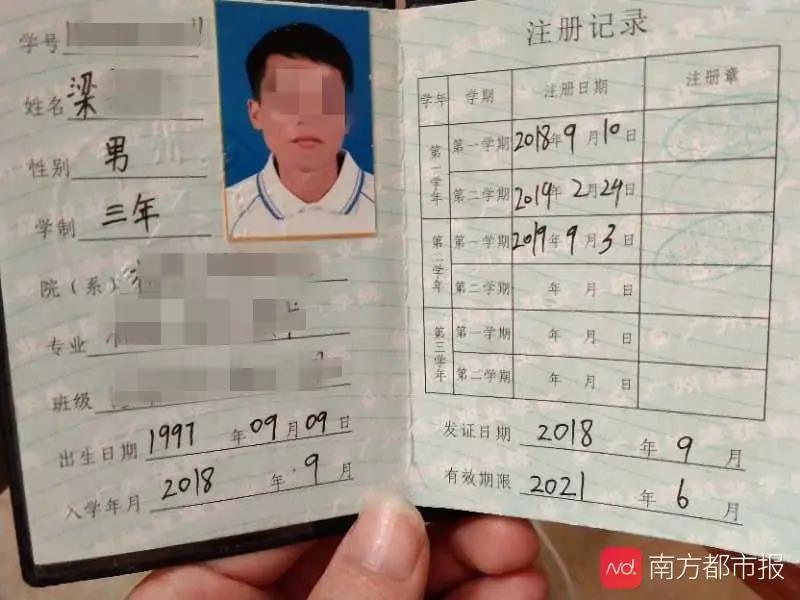 学号
姓名 梁
性别 男
学制 三年
院（系）
专业
班级
出生日期 1997 年 09 月 09 日
入学年月 2018 年 9 月
注册记录
学年 学期 注册日期 注册章
第一学年 第一学期 2018年 9 月 10 日
第二学期 2019年 2 月 24 日
第二学年 第一学期 2019年 9 月 3 日
第二学期 年 月 日
第三学年 第一学期 年 月 日
第二学期 年 月 日
发证日期 2018 年 9 月
有效期限 2021 年 6 月
nd. 南方都市报